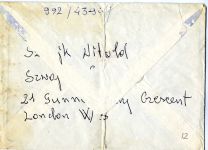 992/43-44/
Sz jk Witold
Szwaj
21 Gunn y Crescent
London W 5
12